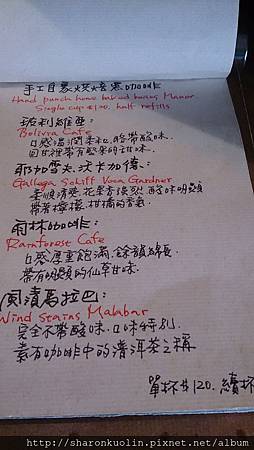 手工自家烘焙壺咖啡
Hand punch home baked huang Manor
Single cup $120. half refills
玻利維亞：
Bolivia Cafe
口感溫潤柔和，略帶酸味，
回甘裡帶有堅果的甘味．
耶加雪夫．沃卡加德：
Gallega Schiff Voca Gardner
柔順清爽．花果香濃烈．酸味明顯
帶著檸檬、柑橘的香氣．
雨林咖啡：
Rainforest Cafe
口感厚重飽滿，餘韻綿長，
帶有明顯的仙草甘味．
風漬馬拉巴：
Wind Stains Malabar
完全不帶酸味．口味特別．
素有咖啡中的普洱茶之稱
單杯$120．續杯
http://sharonkuolin.pixnet.net/album